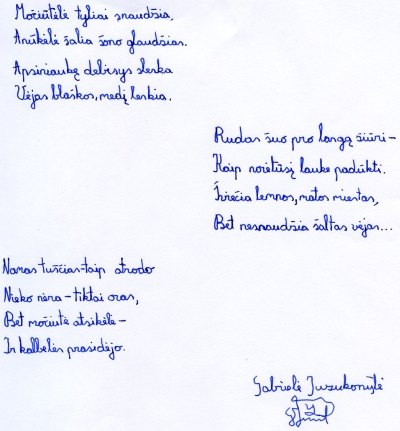 Močiutėlė tyliai snaudžia,
Anūkėlė šalia šono glaudžias.
Apsiniaukę debesys slenka
Vėjas blaškos, medį lenkia.
Rudas šuo pro langą žiūri -
Kaip norėtųsi lauke padūkti.
Šviečia lempos, matos miestas,
Bet nesnaudžia šaltas vėjas...
Namas tuščias - taip atrodo
Nieko nėra - tiktai oras,
Bet močiutė atsikėlė -
Ir kalbelės prasidėjo.
Gabrielė Juzukonytė